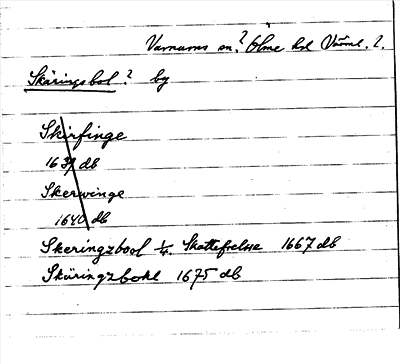 Varnums sn.? Ölme hd Värml. ?.
Skäringsbol? by
Skirfinge
1639 db
Skerwinge
1640 db
Skeringzbool 1/4. Skattefrelse 1667 db
Skäringzbohl 1675 db